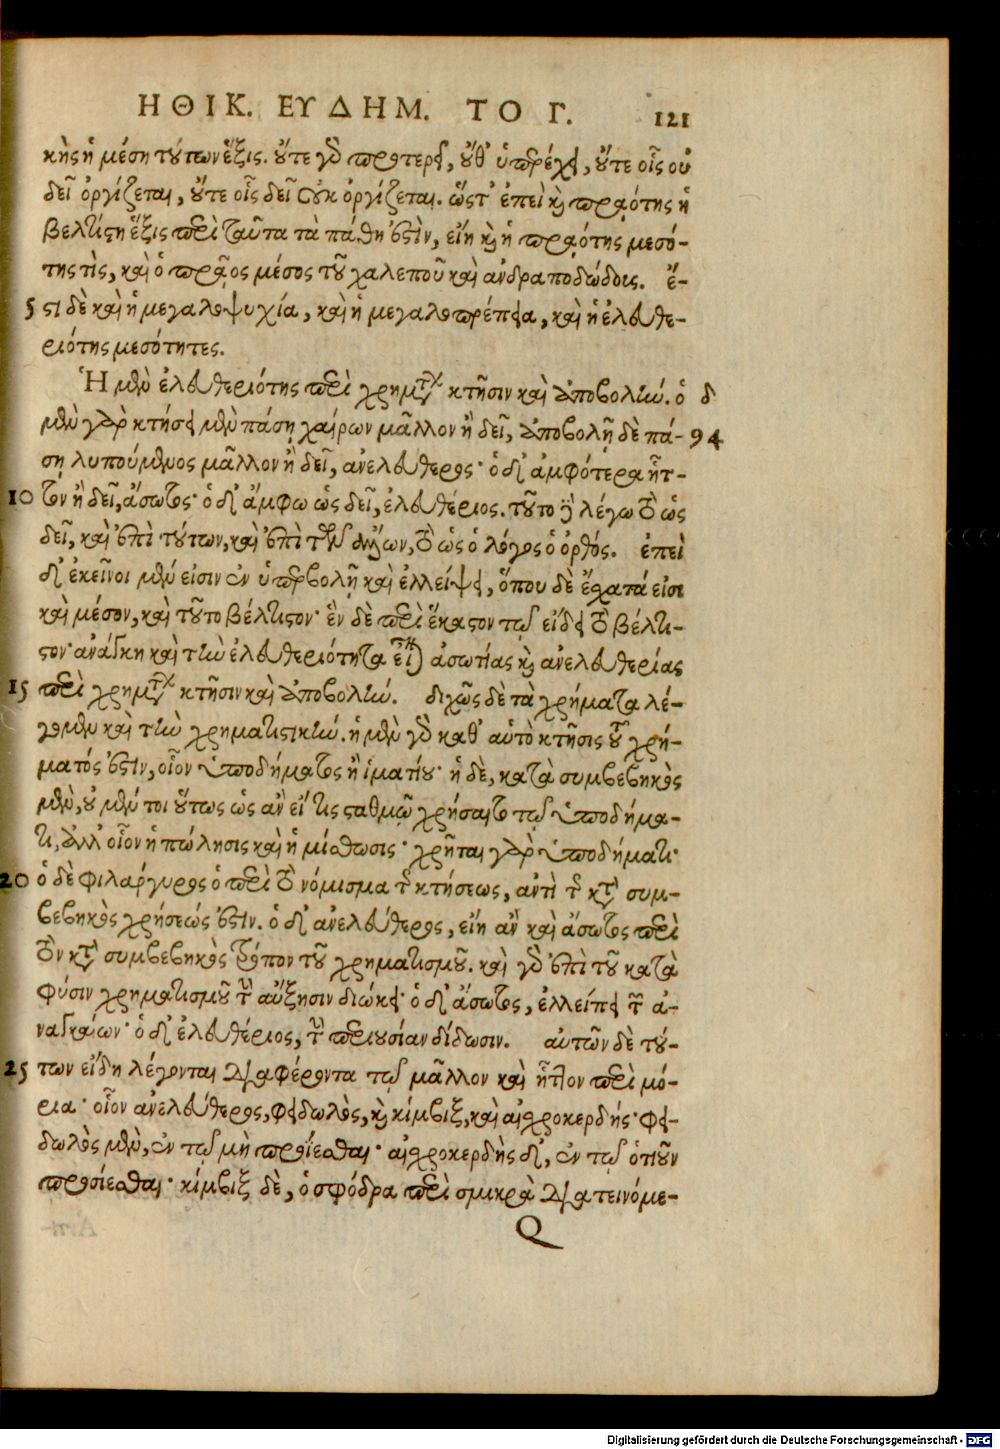 ΗΘΙΚ. ΕΥΔΗΜ. ΤΟ Γ. 121
κὴς ἡ μέση τούτων ἕξις. οὔτε γὰρ προτερεῖ, οὔθ' ὑπερέχει, οὔτε οἷς οὐ
δεῖ ὀργίζεται, οὔτε οἷς δεῖ οὐκ ὀργίζεται. ὥστ' ἐπεὶ καὶ πραότης ἡ
βελτίστη ἕξις περὶ ταῦτα τὰ πάθη ἐστὶν, εἴη καὶ ἡ πραότης μεσό-
της τὶς, καὶ ὁ πρᾶος μέσος τοῦ χαλεποῦ καὶ ἀνδραποδώδους. ἔ-
5 στι δὲ καὶ ἡ μεγαλοψυχία, καὶ ἡ μεγαλοπρέπεια, καὶ ἡ ἐλευθε-
ριότης μεσότητες.
Ἡ μὲν ἐλευθεριότης περὶ χρημάτων κτῆσιν καὶ ἀποβολήν. ὁ δ
μὲν γὰρ κτήσει μὲν πάσῃ χαίρων μᾶλλον ἢ δεῖ, ἀποβολῇ δὲ πά- 94
σῃ λυπούμενος μᾶλλον ἢ δεῖ, ἀνελεύθερος· ὁ δ' ἀμφότερα ἧτ-
10 τον ἢ δεῖ, ἄσωτος· ὁ δ' ἄμφω ὡς δεῖ, ἐλευθέριος. τοῦτο δὲ λέγω τὸ ὡς
δεῖ, καὶ ἐπὶ τούτων, καὶ ἐπὶ τῶν ἄλλων, τὸ ὡς ὁ λόγος ὁ ὀρθός. ἐπεὶ
δ' ἐκεῖνοι μέν εἰσιν ἐν ὑπερβολῇ καὶ ἐλλείψει, ὅπου δὲ ἔσχατά εἰσι
καὶ μέσον, καὶ τοῦτο βέλτιστον· ἓν δὲ περὶ ἕκαστον τῷ εἴδει τὸ βέλτι-
στον· ἀνάγκη καὶ τὴν ἐλευθεριότητα εἶναι ἀσωτίας καὶ ἀνελευθερίας
15 περὶ χρημάτων κτῆσιν καὶ ἀποβολήν. διχῶς δὲ τὰ χρήματα λέ-
γομεν καὶ τὴν χρηματιστικήν. ἡ μὲν γὰρ καθ' αὑτὸ κτῆσις τοῦ χρή-
ματός ἐστιν, οἷον ὑποδήματος ἢ ἱματίου· ἡ δὲ, κατὰ συμβεβηκὸς
μὲν, οὐ μέν τοι οὕτως ὡς ἂν εἴ τις σταθμῷ χρήσαιτο τῷ ὑποδήμα-
τι, ἀλλ' οἷον ἡ πώλησις καὶ ἡ μίσθωσις· χρῆται γὰρ ὑποδήματι·
20 ὁ δὲ φιλάργυρος ὁ περὶ τὸ νόμισμα τῆς κτήσεως, ἀντὶ τῆς κατὰ συμ-
βεβηκὸς χρήσεώς ἐστιν. ὁ δ' ἀνελεύθερος, εἴη ἂν καὶ ἄσωτος περὶ
τὸν κατὰ συμβεβηκὸς τρόπον τοῦ χρηματισμοῦ. καὶ γὰρ ἐπὶ τοῦ κατὰ
φύσιν χρηματισμοῦ τὴν αὔξησιν διώκει· ὁ δ' ἄσωτος, ἐλλείπει τῶν ἀ-
ναγκαίων· ὁ δ' ἐλευθέριος, τὴν περιουσίαν δίδωσιν. αὐτῶν δὲ τού-
25 των εἴδη λέγονται διαφέροντα τῷ μᾶλλον καὶ ἧττον περὶ μό-
ρια· οἷον ἀνελεύθερος, φειδωλὸς, καὶ κίμβιξ, καὶ αἰσχροκερδής· φει-
δωλὸς μὲν, ἐν τῷ μὴ προΐεσθαι· αἰσχροκερδὴς δ', ἐν τῷ ὁτιοῦν
προσίεσθαι· κίμβιξ δὲ, ὁ σφόδρα περὶ σμικρὰ διατεινόμε-
Q
Digitalisierung gefördert durch die Deutsche Forschungsgemeinschaft - DFG